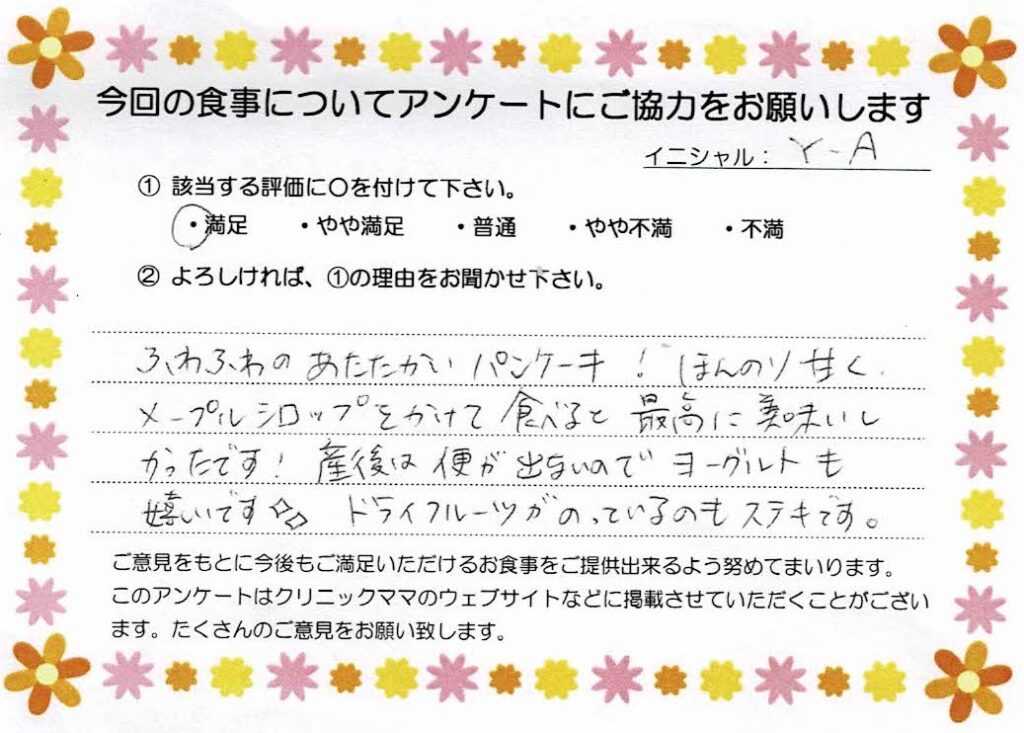 今回の食事についてアンケートにご協力をお願いします
イニシャル： Y-A
① 該当する評価に〇を付けて下さい。
・満足 ・やや満足 ・普通 ・やや不満 ・不満
② よろしければ、①の理由をお聞かせ下さい。
ふわふわの あたたかい パンケーキ！ ほんのり 甘く、
メープルシロップをかけて 食べると 最高に 美味いし
かったです！ 産後は 便が 出ないので ヨーグルトも
嬉いです☆☆ ドライフルーツがのっているのもステキです。
ご意見をもとに今後もご満足いただけるお食事をご提供出来るよう努めてまいります。
このアンケートはクリニックママのウェブサイトなどに掲載させていただくことがござい
ます。たくさんのご意見をお願い致します。